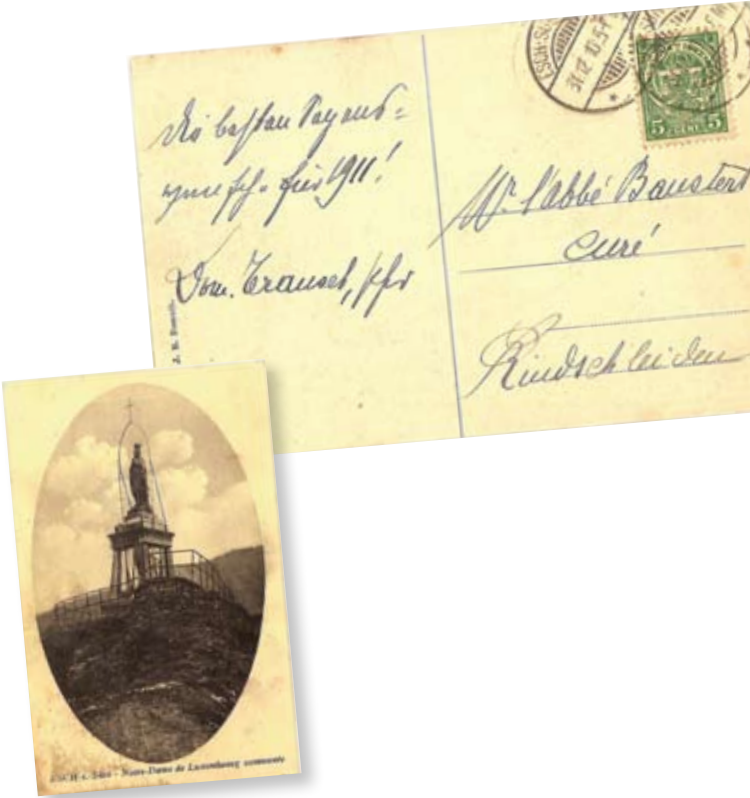 Die besten Segens=
wünsche für 1911!
Dom. Trausch, Pfr
J. B.
31.12.10.5-
5 CENT 5
Mr l'abbé Baustert
Curé
Rindschleiden
ESCH s. Sûre - Notre-Dame de Luxembourg